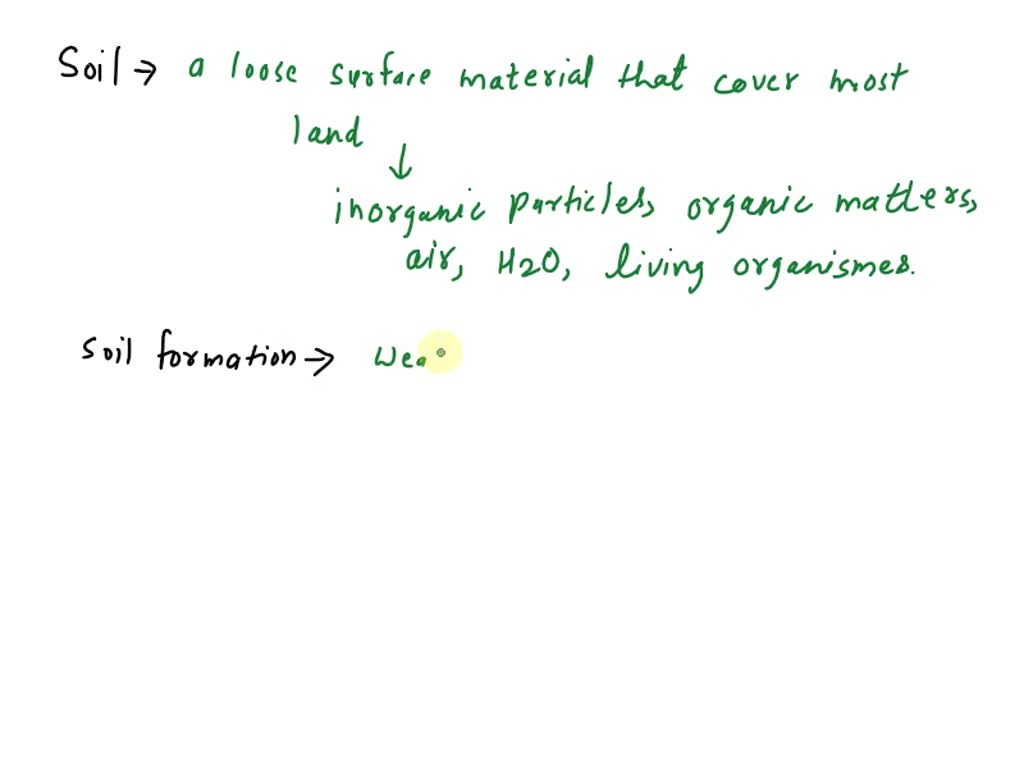 Soil → a loose surface material that cover most
land
↓
inorganic particles, organic matters,
air, H2O, living organismes.
Soil formation → Wea